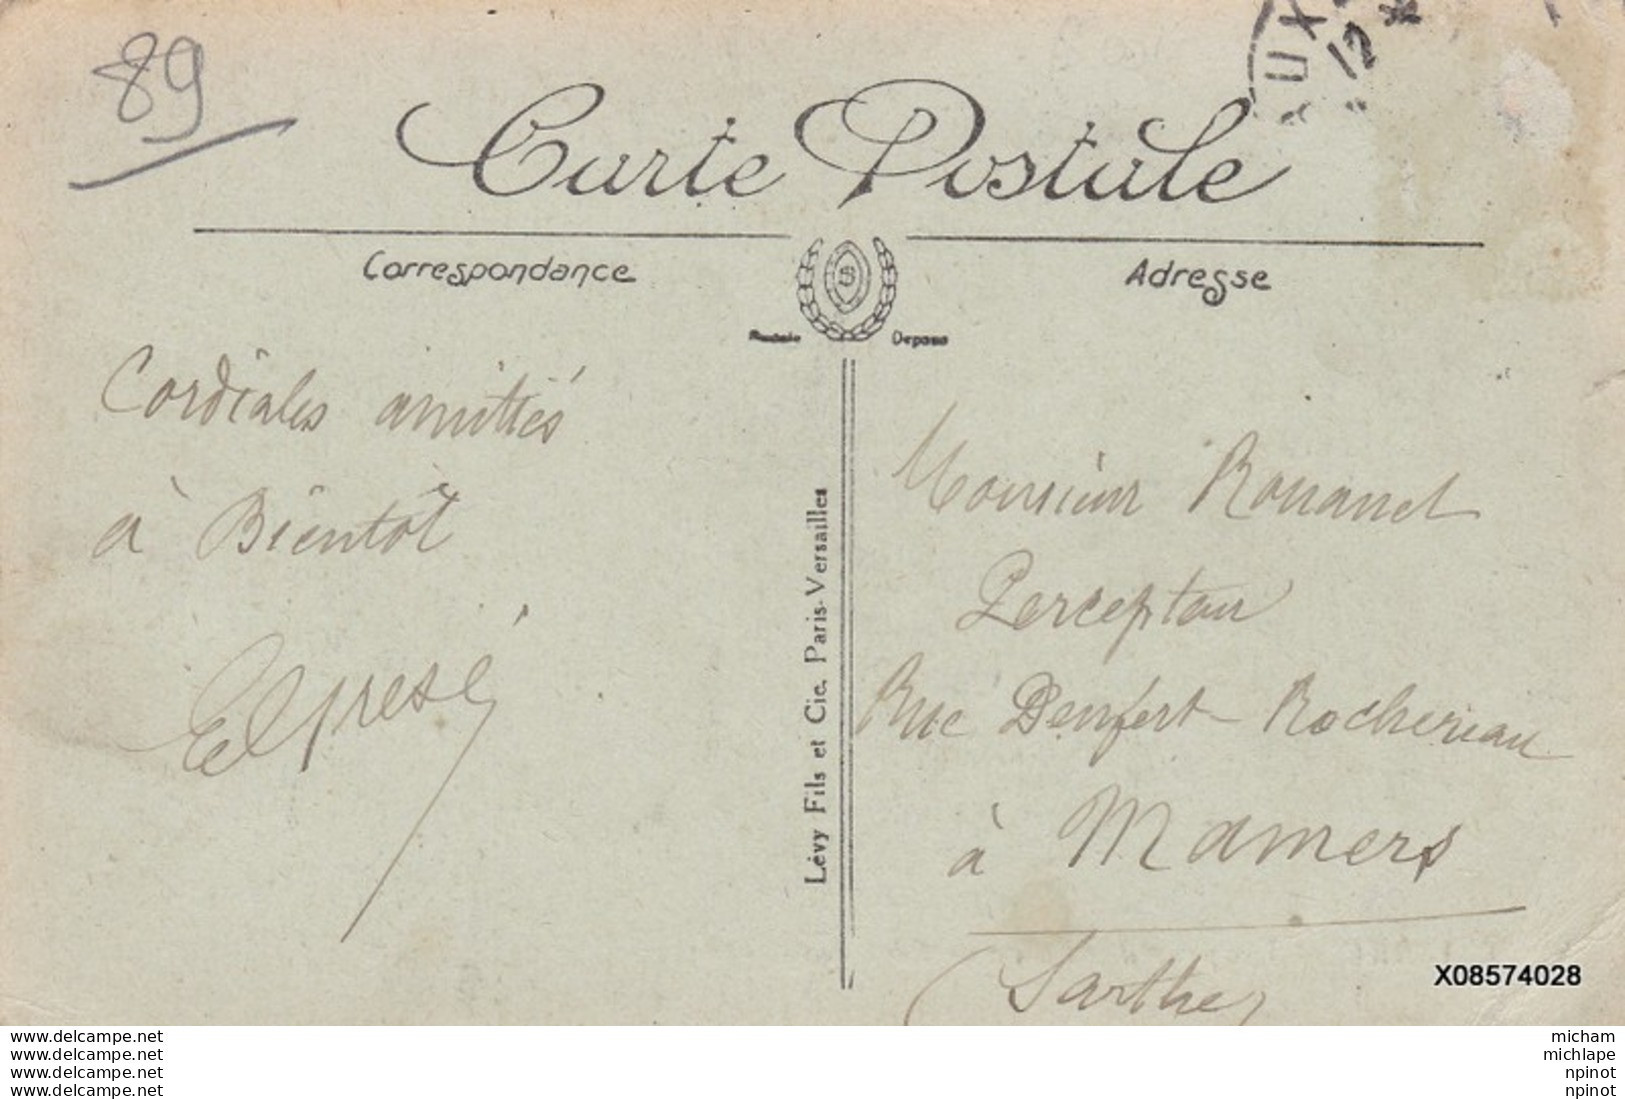 89
UX
12
Carte Postale
Correspondance
Adresse
S
Depose
Cordiales amitiés
à Bientôt
Lévy Fils et Cie. Paris-Versailles
Monsieur Rouanet
Percepteur
Rue Denfert-Rochereau
à Mamers
(Sarthe)
X08574028
www.delcampe.net
www.delcampe.net
www.delcampe.net
www.delcampe.net
micham
michlape
npinot
npinot